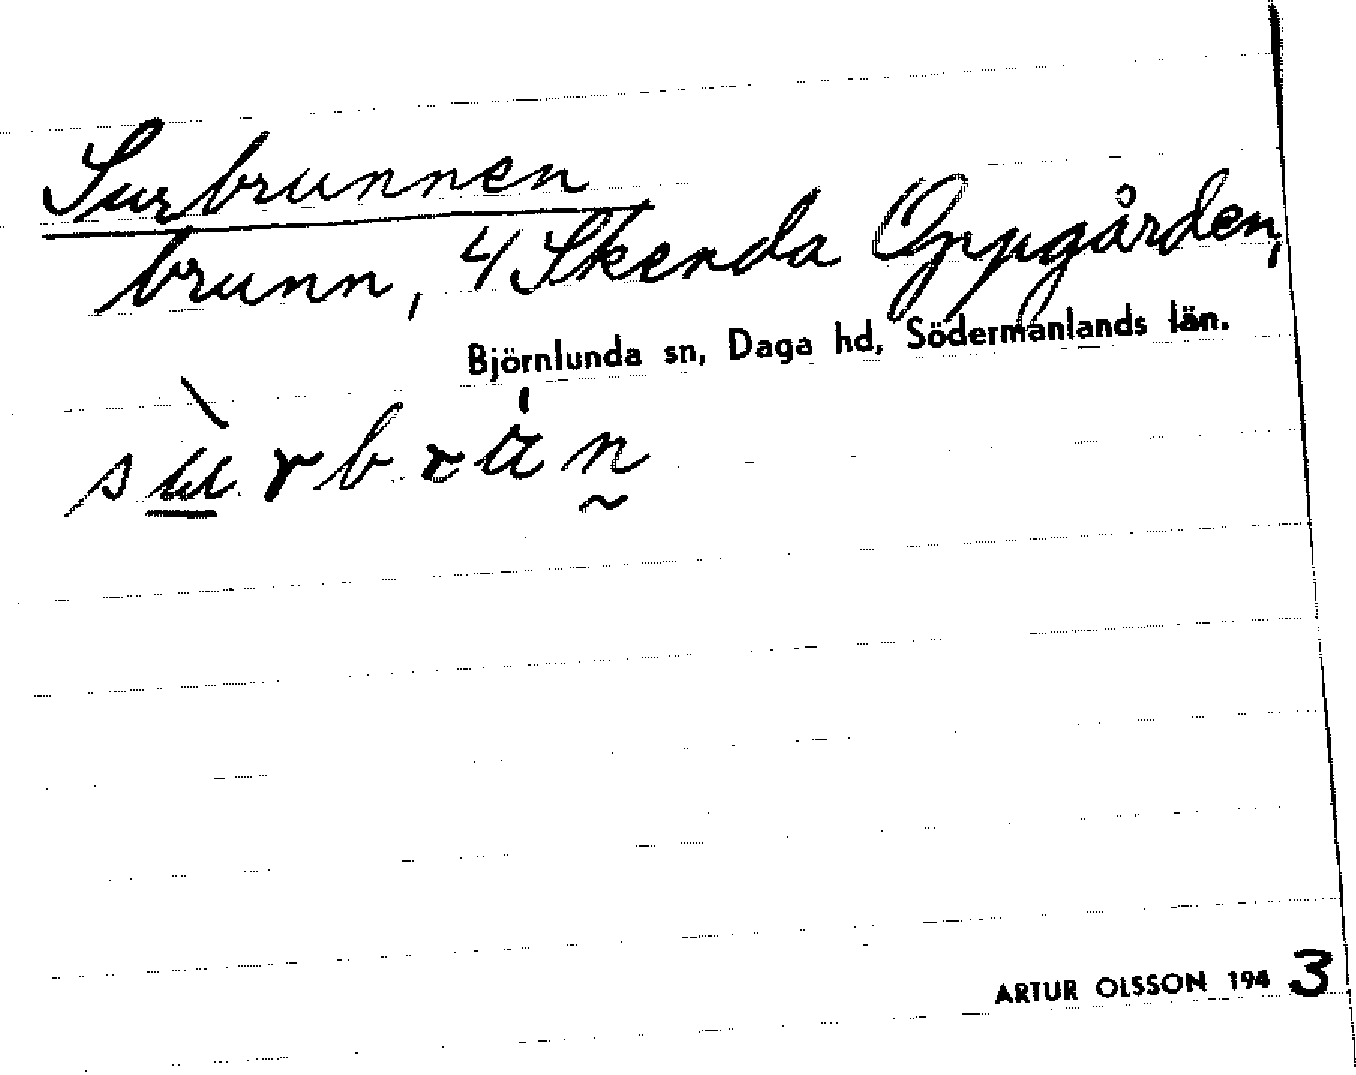 Surbrunnen
brunn, 4 Skenda Oppgården,
Björnlunda sn, Daga hd, Södermanlands län.
ARTUR OLSSON 1943